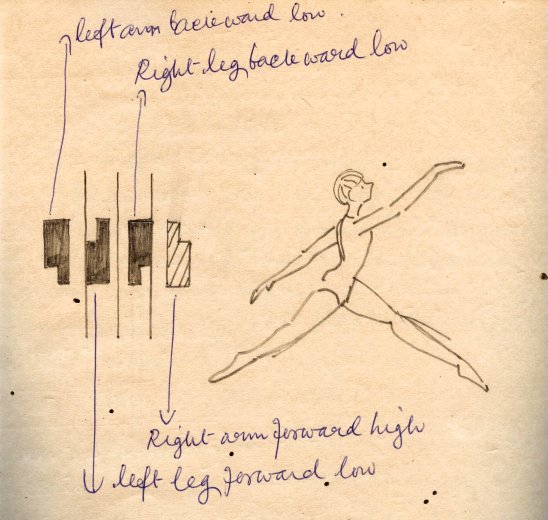 left arm backward low.
Right leg backward low
Right arm forward high
left leg forward low